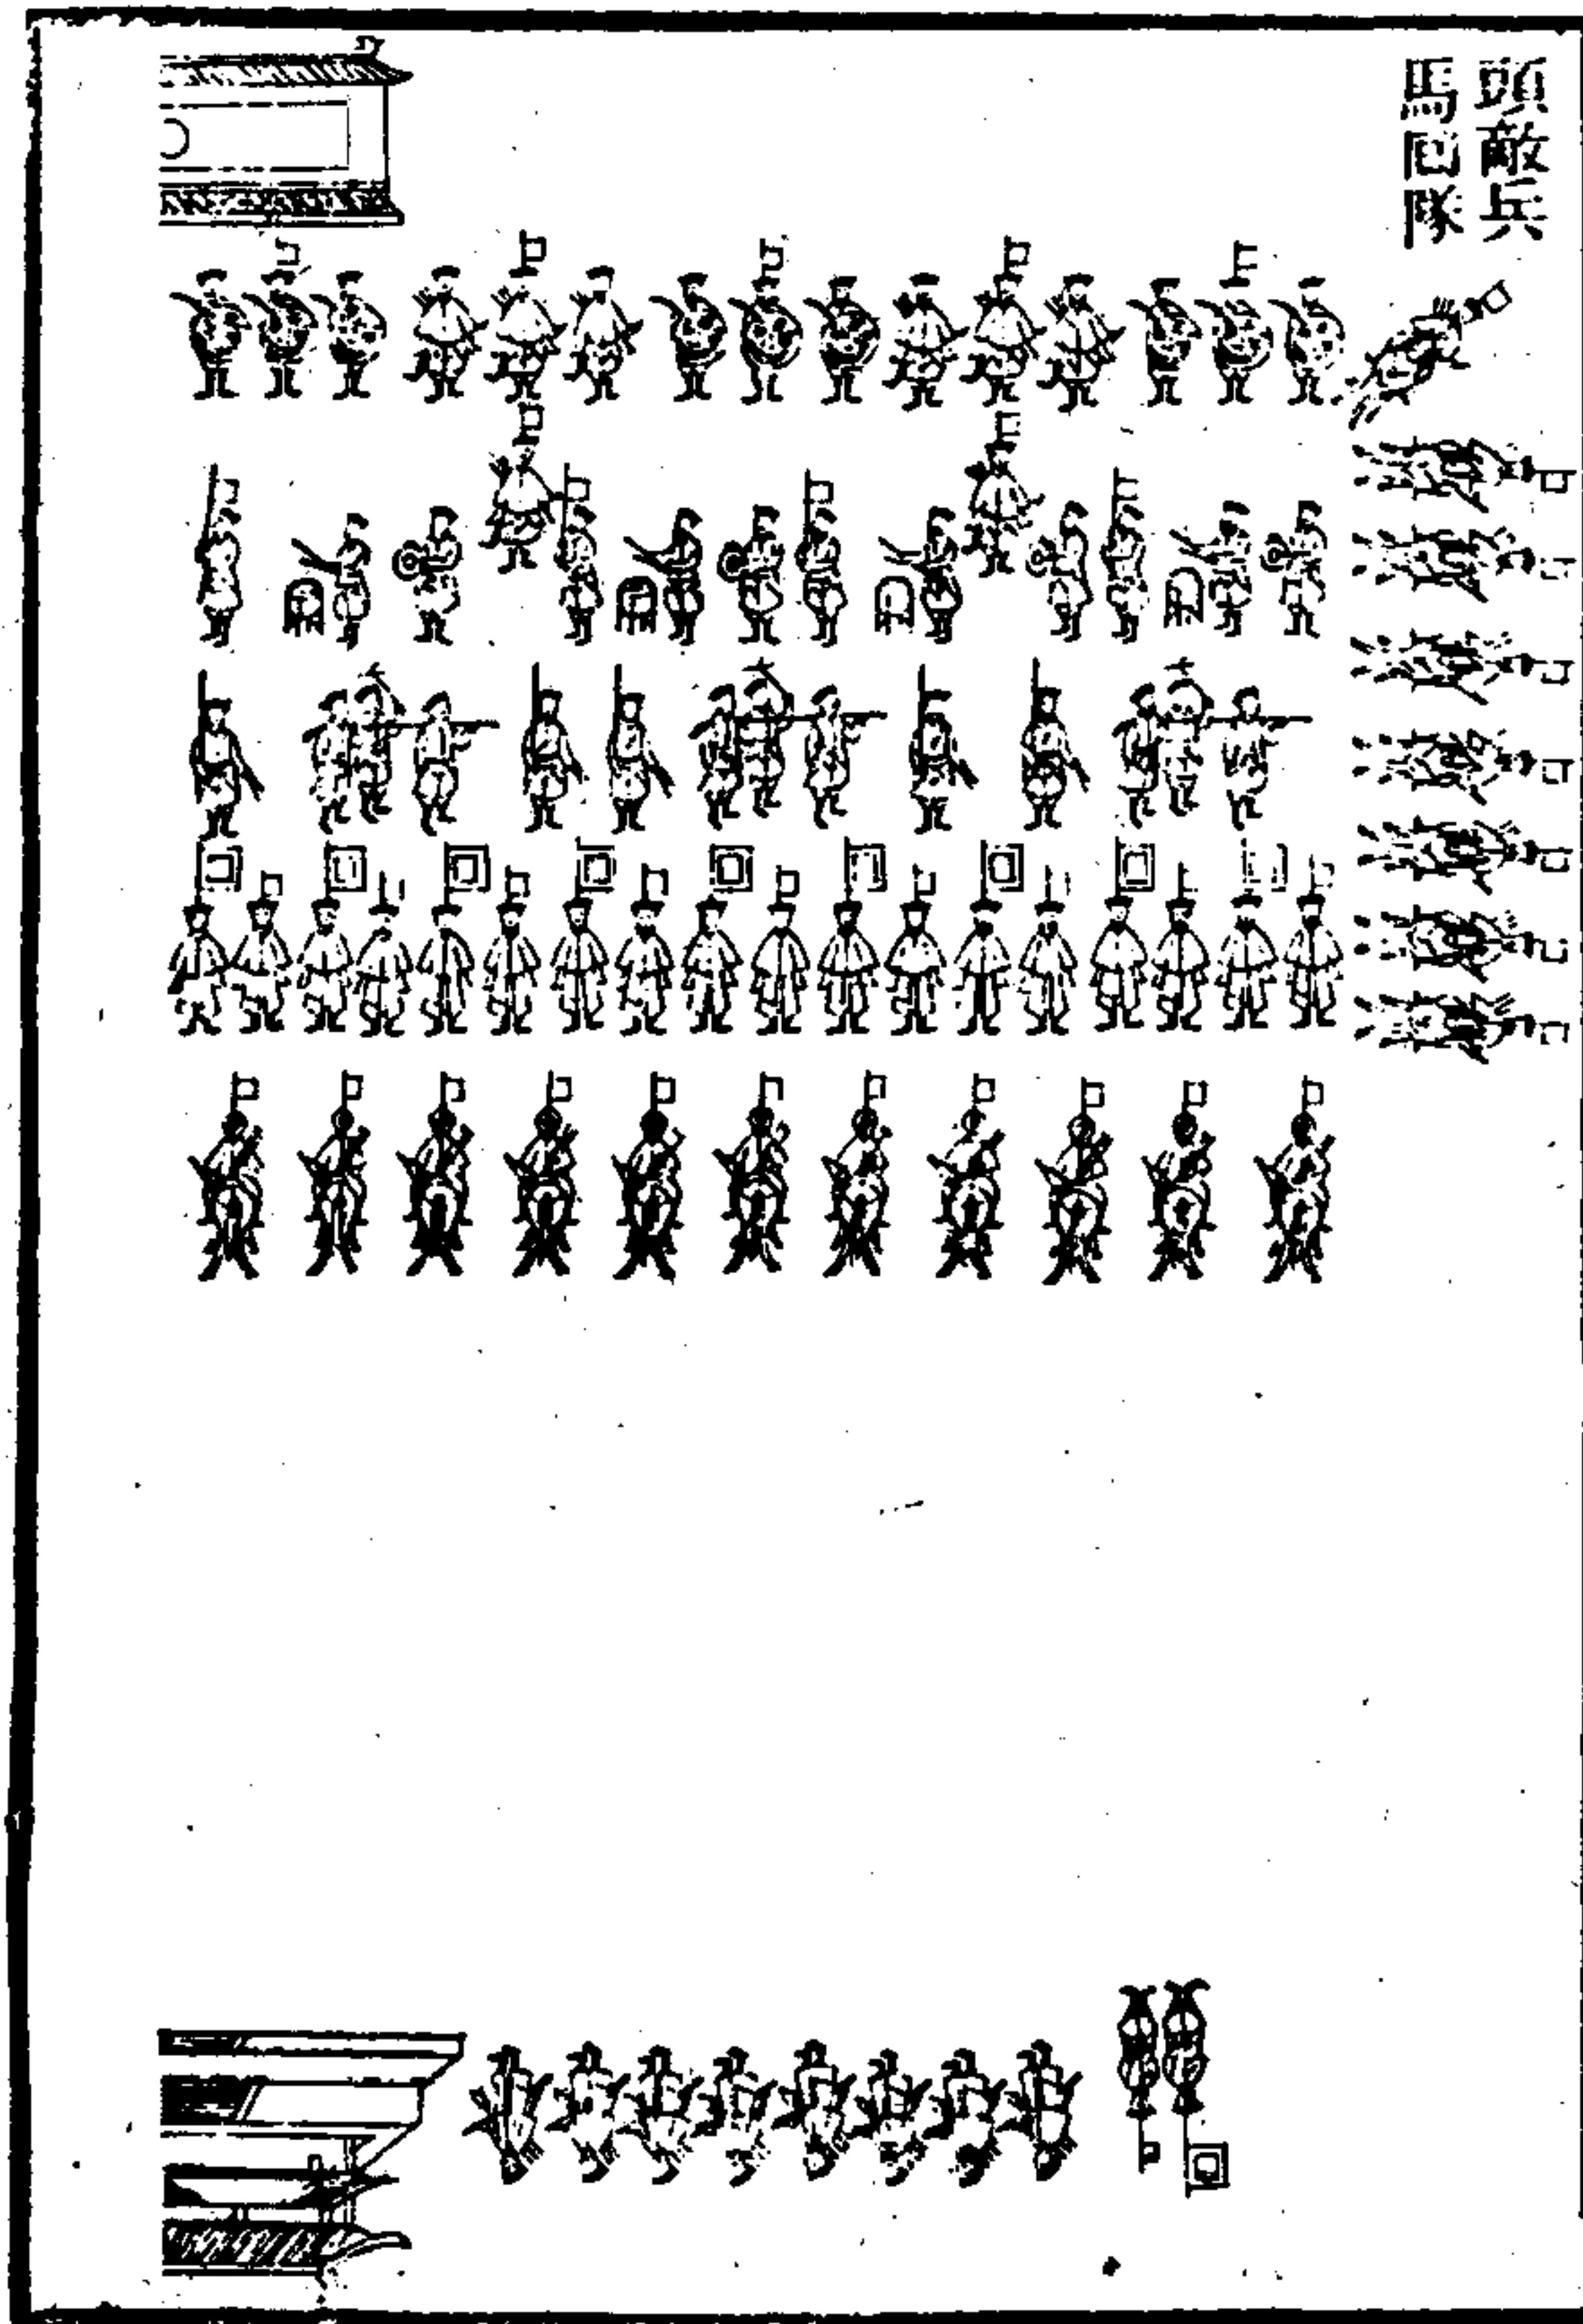 頭敵兵
馬回隊